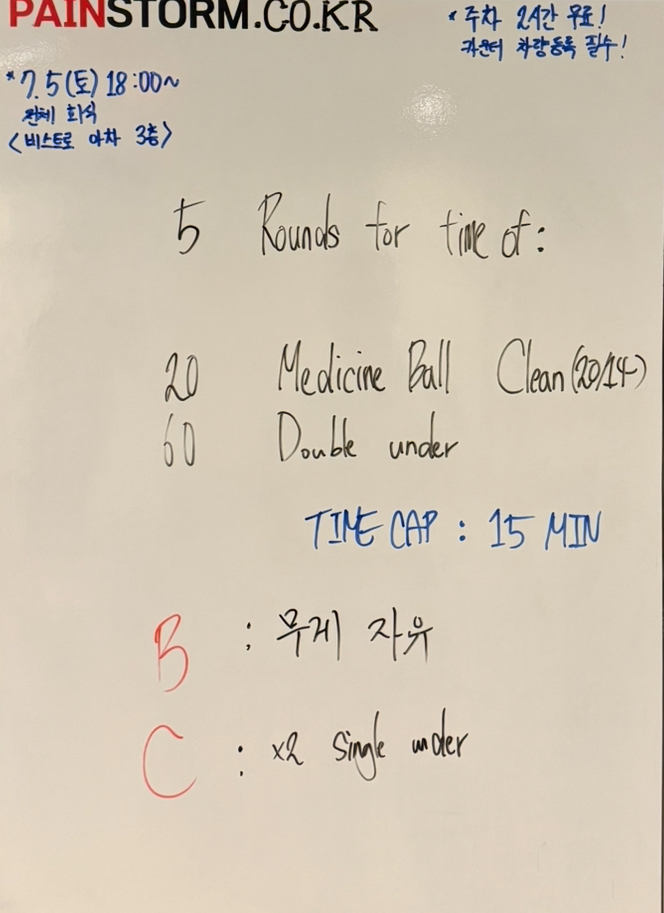 PAINSTORM.CO.KR
* 주차 2시간 무료!
카운터 차량등록 필수!
* 7.5(토) 18:00~
전체 회식
<비스트로 아차 3층>
5 Rounds for time of:
20 Medicine Ball Clean (20/14)
60 Double under
TIME CAP : 15 MIN
B : 무게 자유
C : x2 Single under